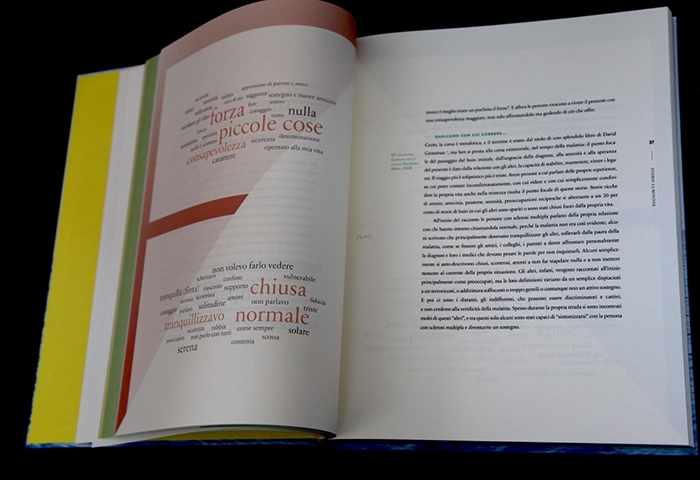 apprensione di parenti e amici
saggezza sostegno e nuove amicizie
coraggio
forza nulla
piccole cose
sicurezza determinazione
consapevolezza ripensato alla mia vita
carattere
non volevo farlo vedere
schernito confuso vulnerabile
tranquilla (finta) nascosto supporto chiusa
scontrosa amore non parlavo fiducia
coraggio parlavo solitudine triste
tranquillizzavo normale
sicurezza rabbia come sempre solare
preoccupata non parlo con tutti scossa
serena contenta
stesso è meglio tirare un pochino il freno". E allora le persone riescono a vivere il presente con
una consapevolezza maggiore, non solo affrontandolo ma godendo di ciò che offre.
QUALCUNO CON CUI CORRERE...
Certo, la corsa è metaforica, e il termine è tratto dal titolo di uno splendido libro di David
Grossman, ma ben si presta alla corsa esistenziale, nel tempo della malattia: il punto foca-
le del passaggio dal buio iniziale, dall'angoscia della diagnosi, alla serenità e alla speranza
del presente è dato dalla relazione con gli altri, la capacità di stabilire, mantenere, vivere i lega-
mi. Il viaggio più è solipsistico più è triste. Avere persone a cui parlare delle proprie esperienze,
su cui poter contare incondizionatamente, con cui ridere e con cui semplicemente condivi-
dere la propria vita anche nella tristezza risulta il punto focale di queste storie. Storie ricche
di amore, amicizia, passione, serenità, preoccupazioni reciproche si alternano a un 20 per
cento di storie di buio in cui gli altri sono spariti o sono stati chiusi fuori dalla propria vita.
All'inizio del racconto le persone con sclerosi multipla parlano della propria relazione
con chi hanno intorno chiamandola normale, perché la malattia non era così evidente; alcu-
ni scrivono che principalmente dovevano tranquillizzare gli altri, sollevarli dalla paura della
malattia, come se fossero gli amici, i colleghi, i parenti a dover affrontare personalmente
la diagnosi e loro i medici che devono pesare le parole per non inquietarli. Alcuni semplice-
mente si auto-descrivono chiusi, scontrosi, attenti a non far trapelare nulla e a non mettere
nessuno al corrente della propria situazione. Gli altri, infatti, vengono raccontati all'inizio
principalmente come preoccupati, ma le loro definizioni variano da un semplice dispiaciuti
a un terrorizzati, o addirittura soffocanti o troppo gentili o comunque non un attivo sostegno.
E poi ci sono i distanti, gli indifferenti, che possono essere discriminatori e cattivi,
e non credono alla veridicità della malattia. Spesso durante la propria strada si sono incontrati
molti di questi "altri", e tra questi solo alcuni sono stati capaci di "sintonizzarsi" con la persona
con sclerosi multipla e diventarne un sostegno.
37